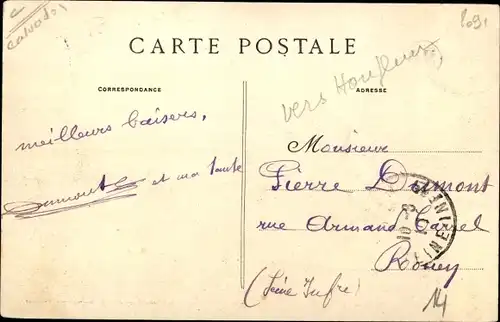 C
Calvados
CARTE POSTALE
CORRESPONDANCE
ADRESSE
vers Honfleur
meilleurs baisers,
et ma tante
Monsieur
Pierre Dumont
rue Armand Carrel
Rouen
(Seine Infre)
14